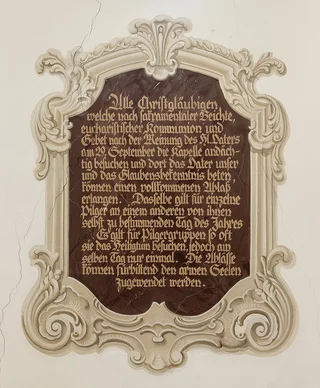 Alle Christgläubigen,
welche nach sakramentaler Beichte,
eucharistischer Kommunion und
Gebet nach der Meinung des Hl. Vaters
am 29. September die Kapelle andäch-
tig besuchen und dort das Vater unser
und das Glaubensbekenntnis beten,
können einen vollkommenen Ablaß
erlangen. Dasselbe gilt für einzelne
Pilger an einem anderen von ihnen
selbst zu bestimmenden Tag des Jahres
Es gilt für Pilgergruppen so oft
sie das Heiligtum besuchen, jedoch am
selben Tag nur einmal. Die Ablässe
können fürbittend den armen Seelen
zugewendet werden.